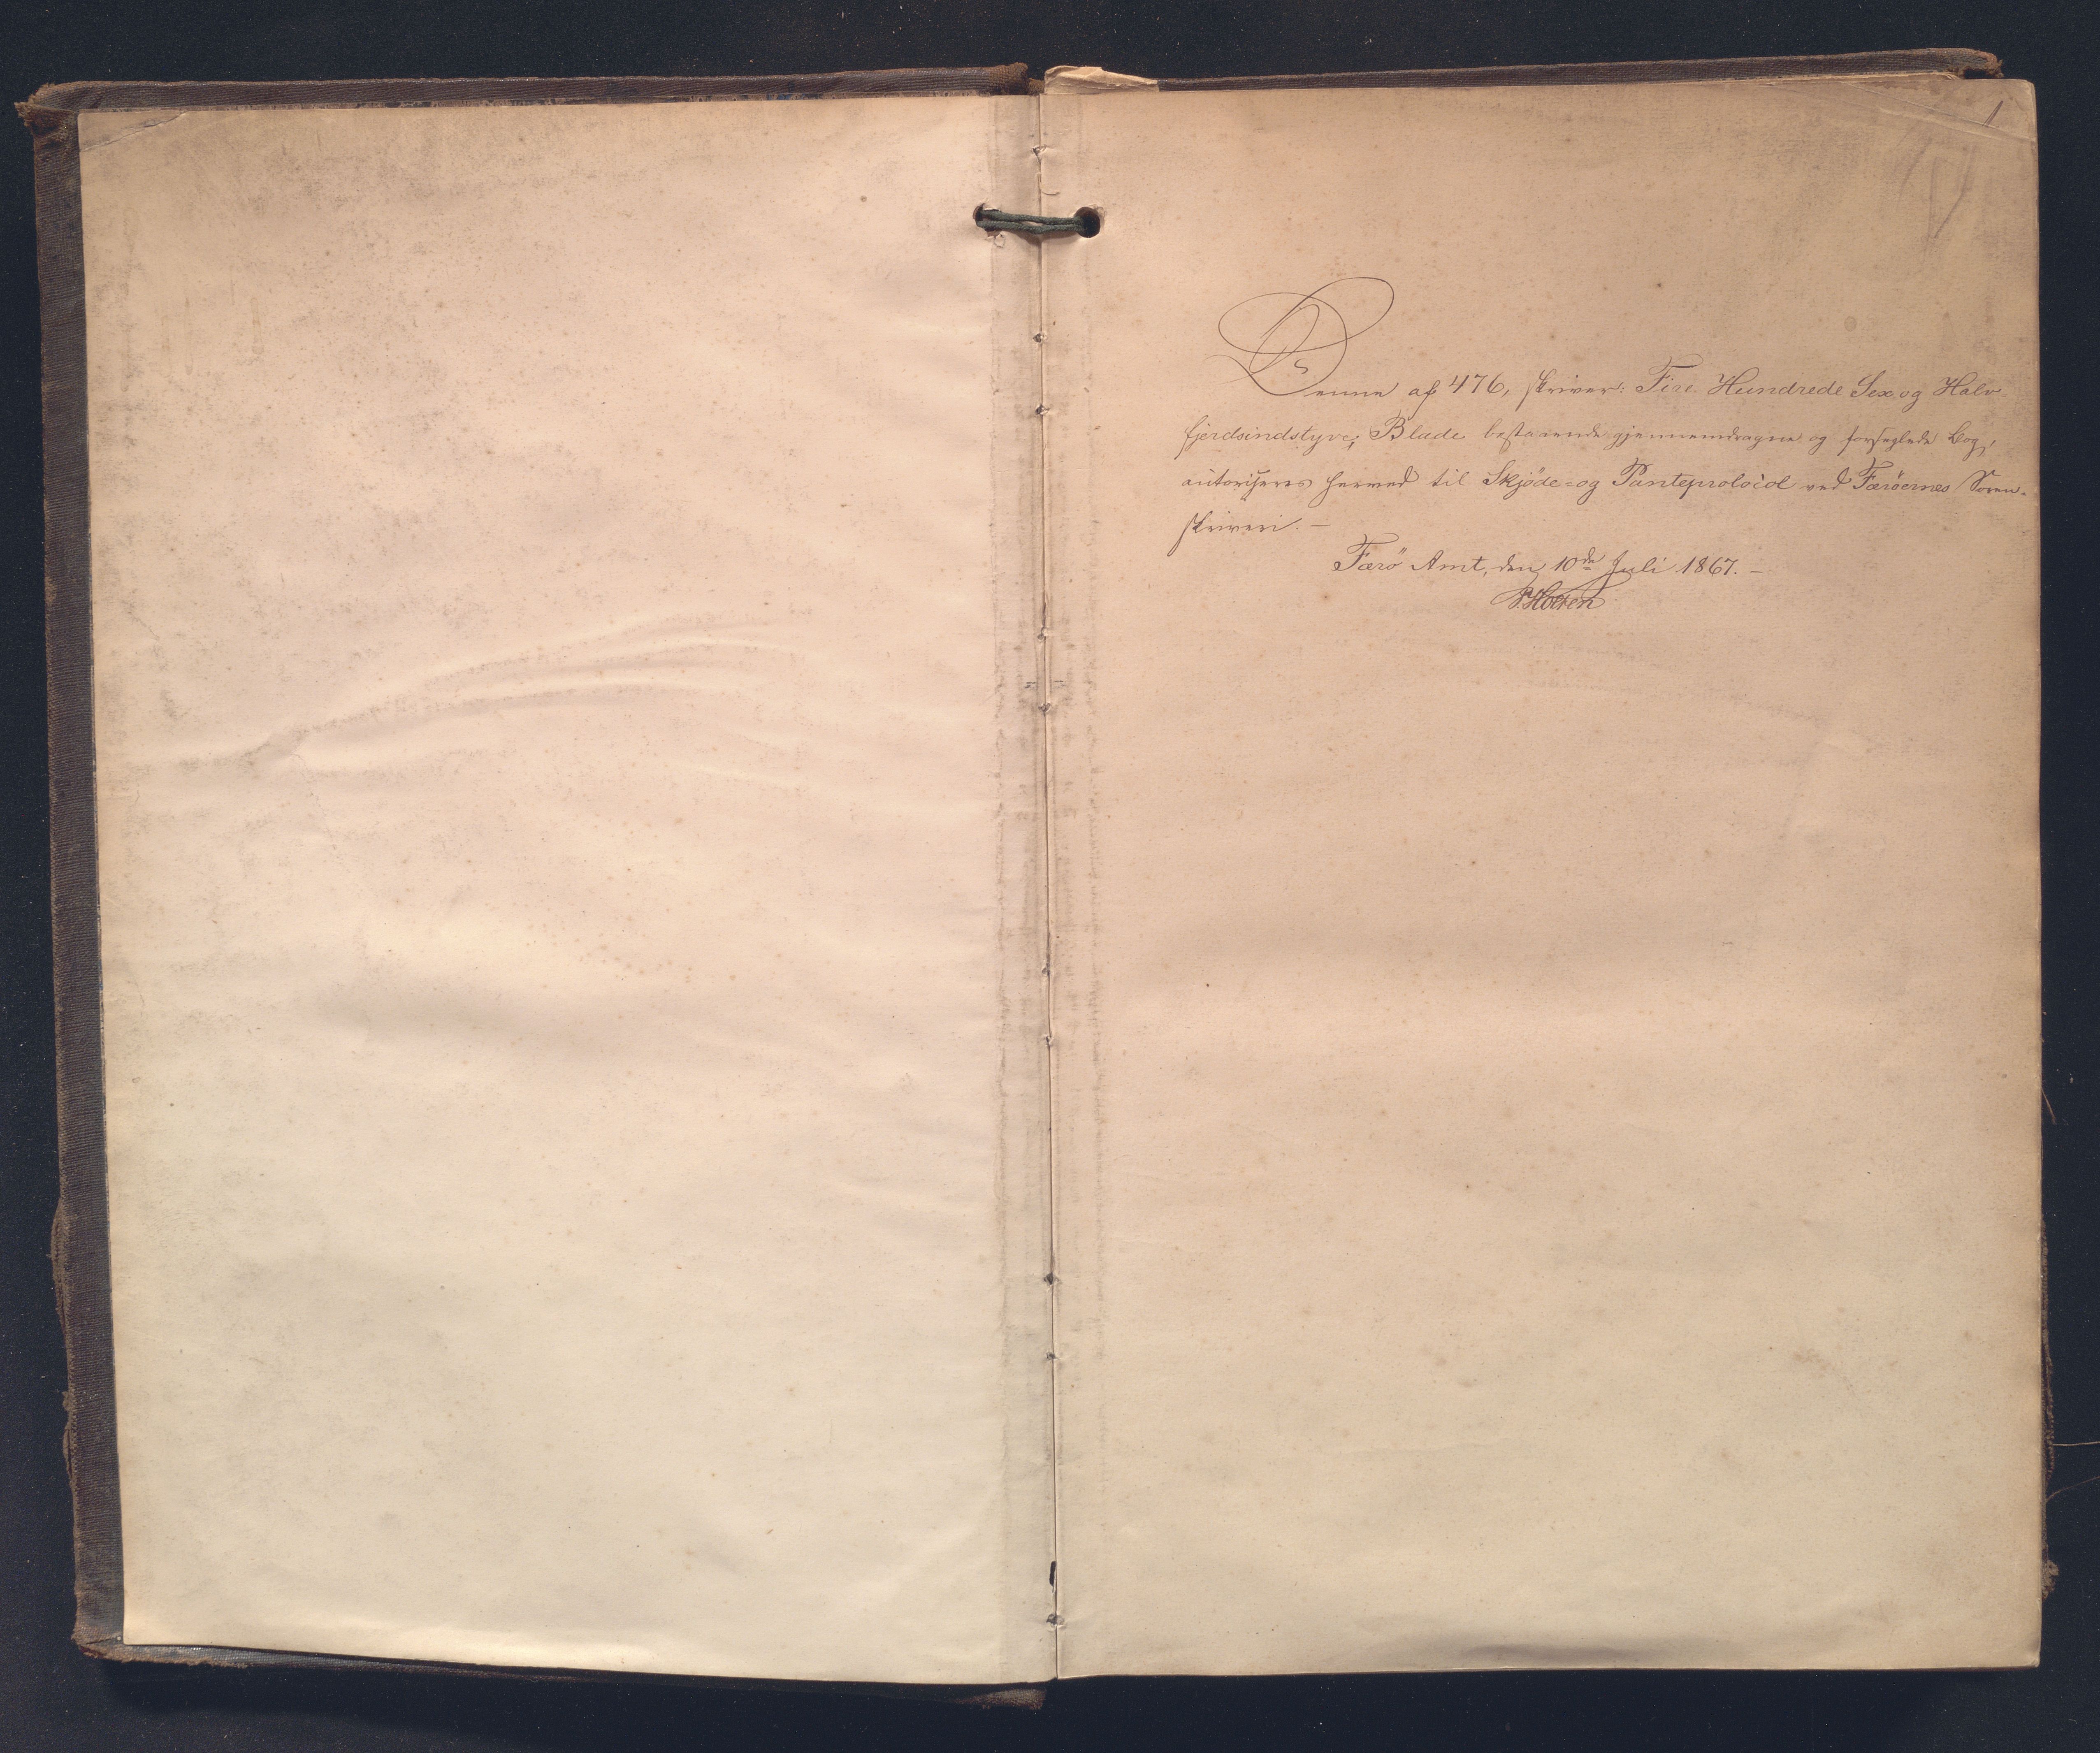 1
Denne af 476, skriver: Fire Hundrede Sex og Halv-
fjerdsindstyve, Blade bestaaende gjennemdragne og forseglede Bog,
autoriseres herved til Skjöde- og Panteprotocol ved Færöernes Soren-
skriveri. –
Færö Amt, den 10de Juli 1867. –
HolTen